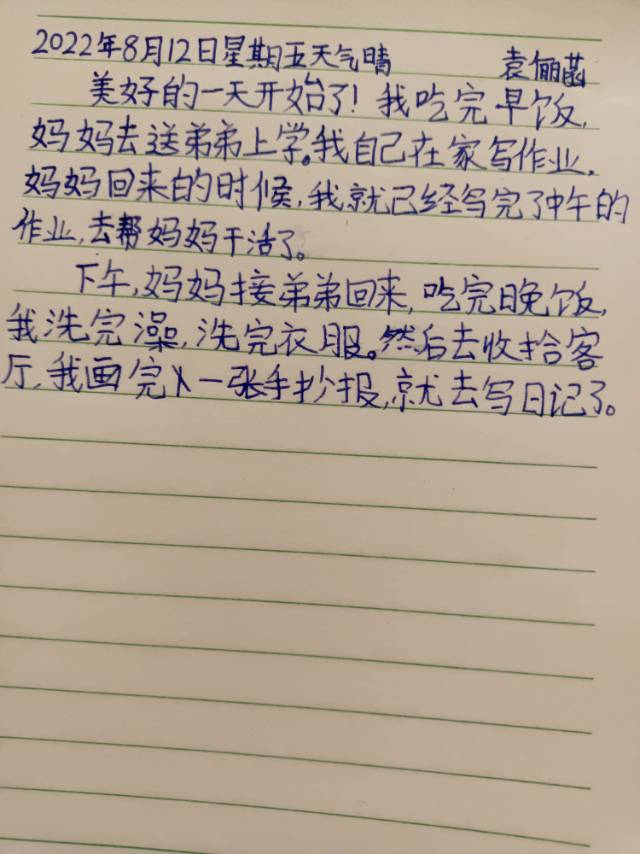 2022年8月12日星期五天气晴 袁俪菡
美好的一天开始了！我吃完早饭,
妈妈去送弟弟上学。我自己在家写作业,
妈妈回来的时候,我就已经写完了中午的
作业,去帮妈妈干活了。
下午,妈妈接弟弟回来,吃完晚饭,
我洗完澡,洗完衣服。然后去收拾客
厅,我画完一张手抄报,就去写日记了。